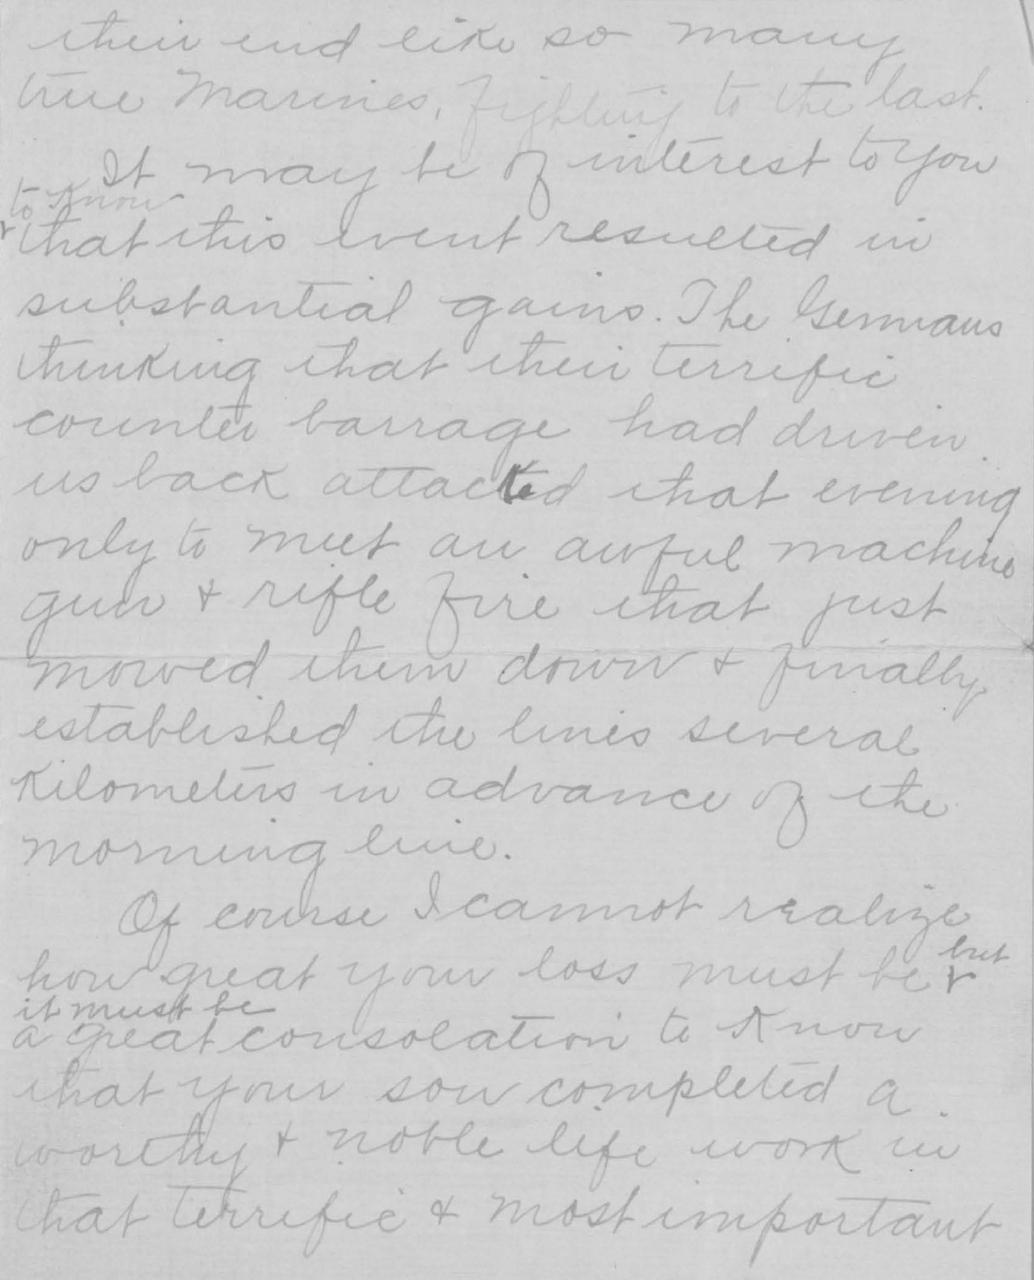 their end like so many
true Marines, fighting to the last.
It may be of interest to you
to know
that this event resulted in
substantial gains. The Germans
thinking that their terrific
counter barrage had driven
us back attacked that evening
only to meet an awful machine
gun & rifle fire that just
mowed them down & finally
established the lines several
kilometers in advance of the
morning line.
Of course I cannot realize
how great your loss must be but
it must be
a great consolation to know
that your son completed a
worthy & noble life work in
that terrific & most important